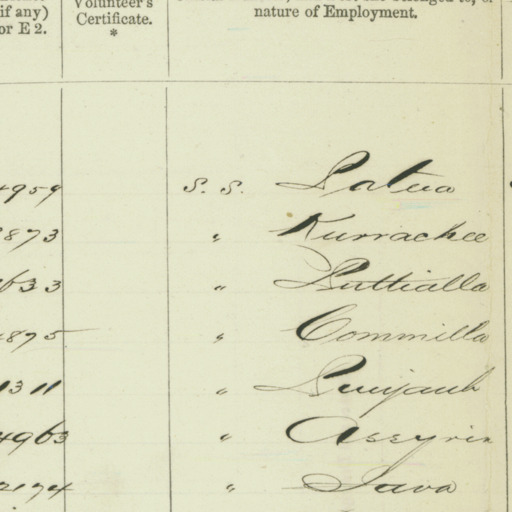 if any)
or E 2.
Volunteer's
Certificate.
*
nature of Employment.
4959 S. S. Patna
873 " Kurrachee
633 " Puttialla
875 " Commilla
1311 " Punjaub
4963 " Assyria
2174 " Java